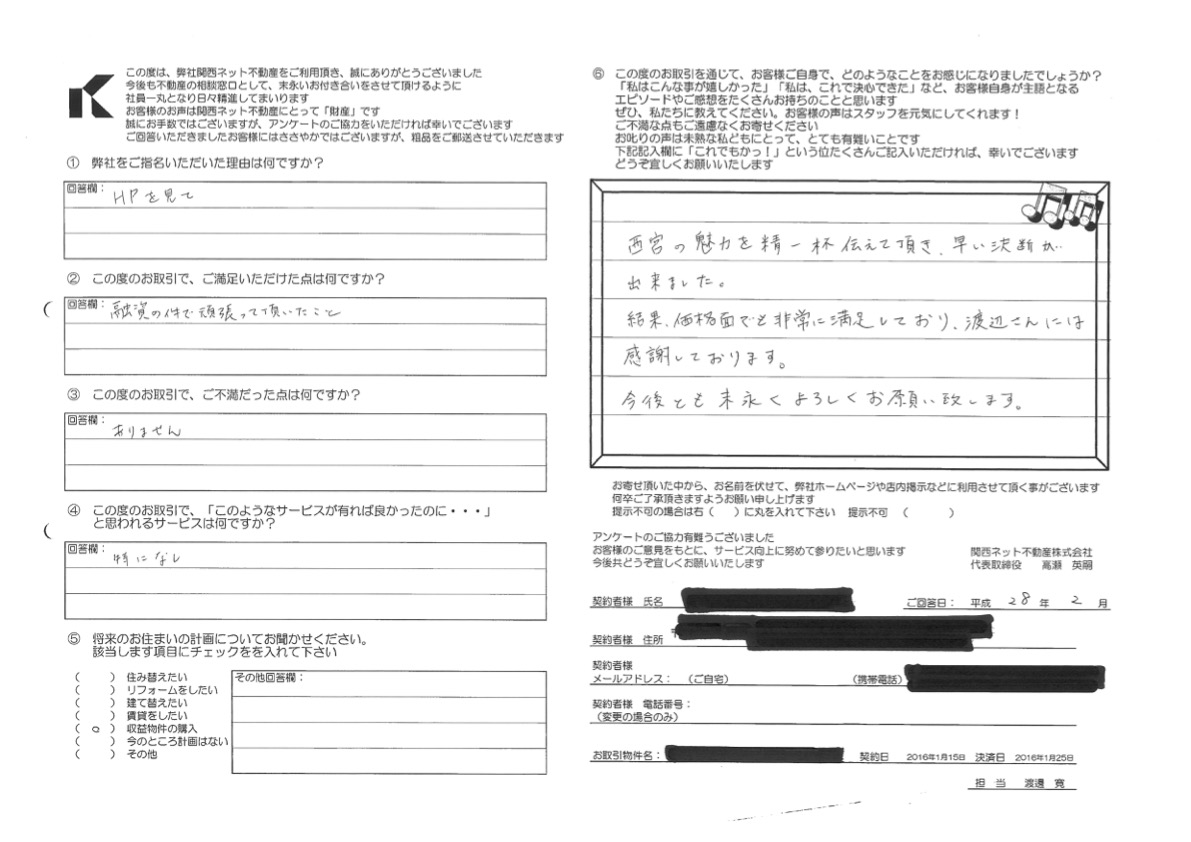 この度は、弊社関西ネット不動産をご利用頂き、誠にありがとうございました
今後も不動産の相談窓口として、末永いお付き合いをさせて頂けるように
社員一丸となり日々精進してまいります
お客様のお声は関西ネット不動産にとって「財産」です
誠にお手数ではございますが、アンケートのご協力をいただければ幸いでございます
ご回答いただきましたお客様にはささやかではございますが、粗品をご郵送させていただきます
① 弊社をご指名いただいた理由は何ですか？
回答欄： HPを見て
② この度のお取引で、ご満足いただけた点は何ですか？
回答欄： 融資の件で頑張って頂いたこと
③ この度のお取引で、ご不満だった点は何ですか？
回答欄： ありません
④ この度のお取引で、「このようなサービスが有れば良かったのに・・・」
と思われるサービスは何ですか？
回答欄： 特になし
⑤ 将来のお住まいの計画についてお聞かせください。
該当します項目にチェックをを入れて下さい
（　　） 住み替えたい
（　　） リフォームをしたい
（　　） 建て替えたい
（　　） 賃貸をしたい
（　○　） 収益物件の購入
（　　） 今のところ計画はない
（　　） その他
その他回答欄：
⑥ この度のお取引を通じて、お客様ご自身で、どのようなことをお感じになりましたでしょうか？
「私はこんな事が嬉しかった」「私は、これで決心できた」など、お客様自身が主語となる
エピソードやご感想をたくさんお持ちのことと思います
ぜひ、私たちに教えてください。お客様の声はスタッフを元気にしてくれます！
ご不満な点もご遠慮なくお寄せください
お叱りの声は未熟な私どもにとって、とても有難いことです
下記記入欄に「これでもかっ！」という位たくさんご記入いただければ、幸いでございます
どうぞ宜しくお願いいたします
西宮の魅力を精一杯伝えて頂き、早い決断が
出来ました。
結果、価格面でも非常に満足しており、渡辺さんには
感謝しております。
今後とも末永くよろしくお願い致します。
お寄せ頂いた中から、お名前を伏せて、弊社ホームページや店内掲示などに利用させて頂く事がございます
何卒ご了承頂きますようお願い申し上げます
提示不可の場合は右（　）に丸を入れて下さい　提示不可　（　　　）
アンケートのご協力有難うございました
お客様のご意見をもとに、サービス向上に努めて参りたいと思います
今後共どうぞ宜しくお願いいたします
関西ネット不動産株式会社
代表取締役　高瀬 英嗣
契約者様 氏名
ご回答日： 平成 28 年 2 月
契約者様 住所
契約者様
メールアドレス： （ご自宅） （携帯電話）
契約者様 電話番号：
（変更の場合のみ）
お取引物件名： 契約日 2016年1月15日 決済日 2016年1月25日
担 当 渡邊 寛